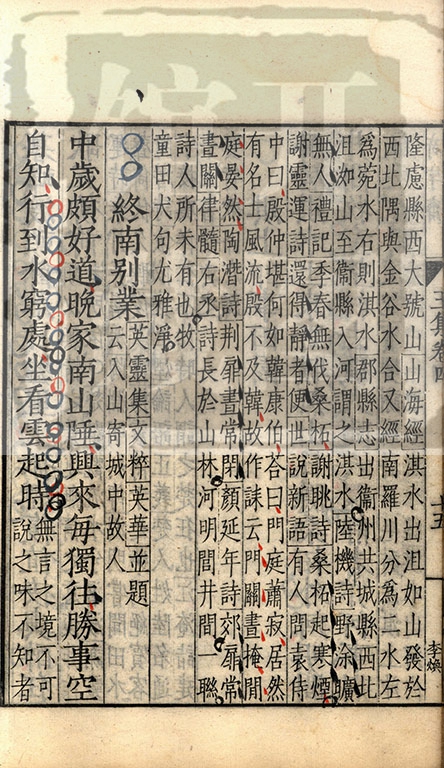 隆慮縣西大號山山海經淇水出沮如山發於
西北隅與金谷水合又經南羅川分爲二水左
爲菀水右則淇水郡縣志出衞州共城縣西北
沮洳山至衞縣入河謂之淇水陸機詩野涂曠
無人禮記季春無伐桑柘謝眺詩桑柘起寒煙
謝靈運詩還得靜者便世說新語有人問袁侍
中曰殷仲堪何如韓康伯荅曰門庭蕭寂居然
有名士風流殷不及韓故作誄云門關晝掩閒
庭晏然陶潛詩荆扉晝常閉顏延年詩郊扉常
晝關律髓右丞詩長於山林河明閭井間一聯
詩人所未有也牧
童田犬句尤雅淨
終南別業
英靈集文粹英華並題
云入山寄城中故人
中歲頗好道晩家南山陲興來每獨往勝事空
自知行到水窮處坐看雲起時
無言之境不可
說之味不知者
李煥